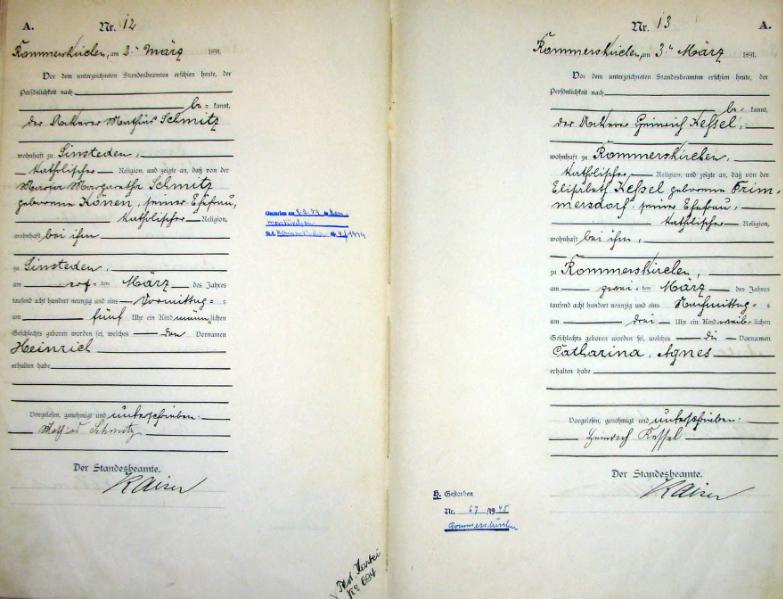 A. Nr. 12
Rommerskirchen, am 3. März 1891.
Vor dem unterzeichneten Standesbeamten erschien heute, der
Persönlichkeit nach
be= kannt,
der Ackerer Mathias Schmitz
wohnhaft zu Sinsteden,
katholischer Religion, und zeigte an, daß von der
Maria Margaretha Schmitz
geborenen Könen, seiner Ehefrau,
katholischer Religion,
wohnhaft bei ihm
zu Sinsteden,
am ten März des Jahres
tausend acht hundert neunzig und eins Vormittags
um fünf Uhr ein Kind männlichen
Geschlechts geboren worden sei, welches den Vornamen
Heinrich
erhalten habe
Vorgelesen, genehmigt und unterschrieben:
Mathias Schmitz
Der Standesbeamte.
Kaiser
Gestorben am in
1974
Nr. 13 A.
Rommerskirchen, am 3. März 1891.
Vor dem unterzeichneten Standesbeamten erschien heute, der
Persönlichkeit nach
be= kannt,
der Ackerer Heinrich Kessel,
wohnhaft zu Rommerskirchen,
katholischer Religion, und zeigte an, daß von der
Elisabeth Kessel geborenen Trim-
mersdorf, seiner Ehefrau,
katholischer Religion,
wohnhaft bei ihm,
zu Rommerskirchen,
am zwei ten März des Jahres
tausend acht hundert neunzig und eins Nachmittags
um drei Uhr ein Kind weiblichen
Geschlechts geboren worden sei, welches die Vornamen
Catharina Agnes
erhalten habe
Vorgelesen, genehmigt und unterschrieben:
Heinrich Kessel
Der Standesbeamte.
Kaiser
Gestorben
Nr. 67 1945
Rommerskirchen